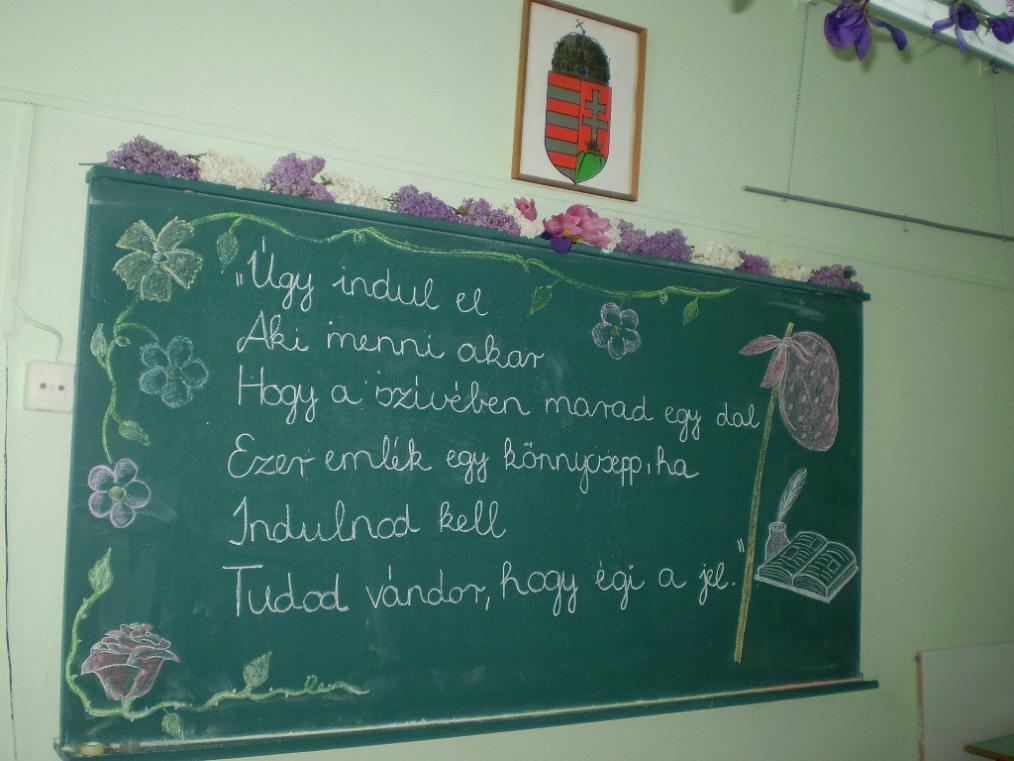 „Úgy indul el
Aki menni akar
Hogy a szívében marad egy dal
Ezer emlék egy könnycsepp, ha
Indulnod kell
Tudod vándor, hogy égi a jel."